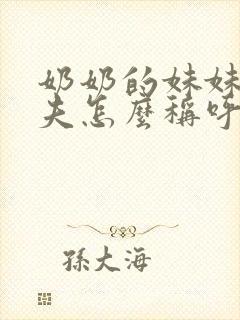 奶奶的妹妹
夫怎麼稱呼
孫大海